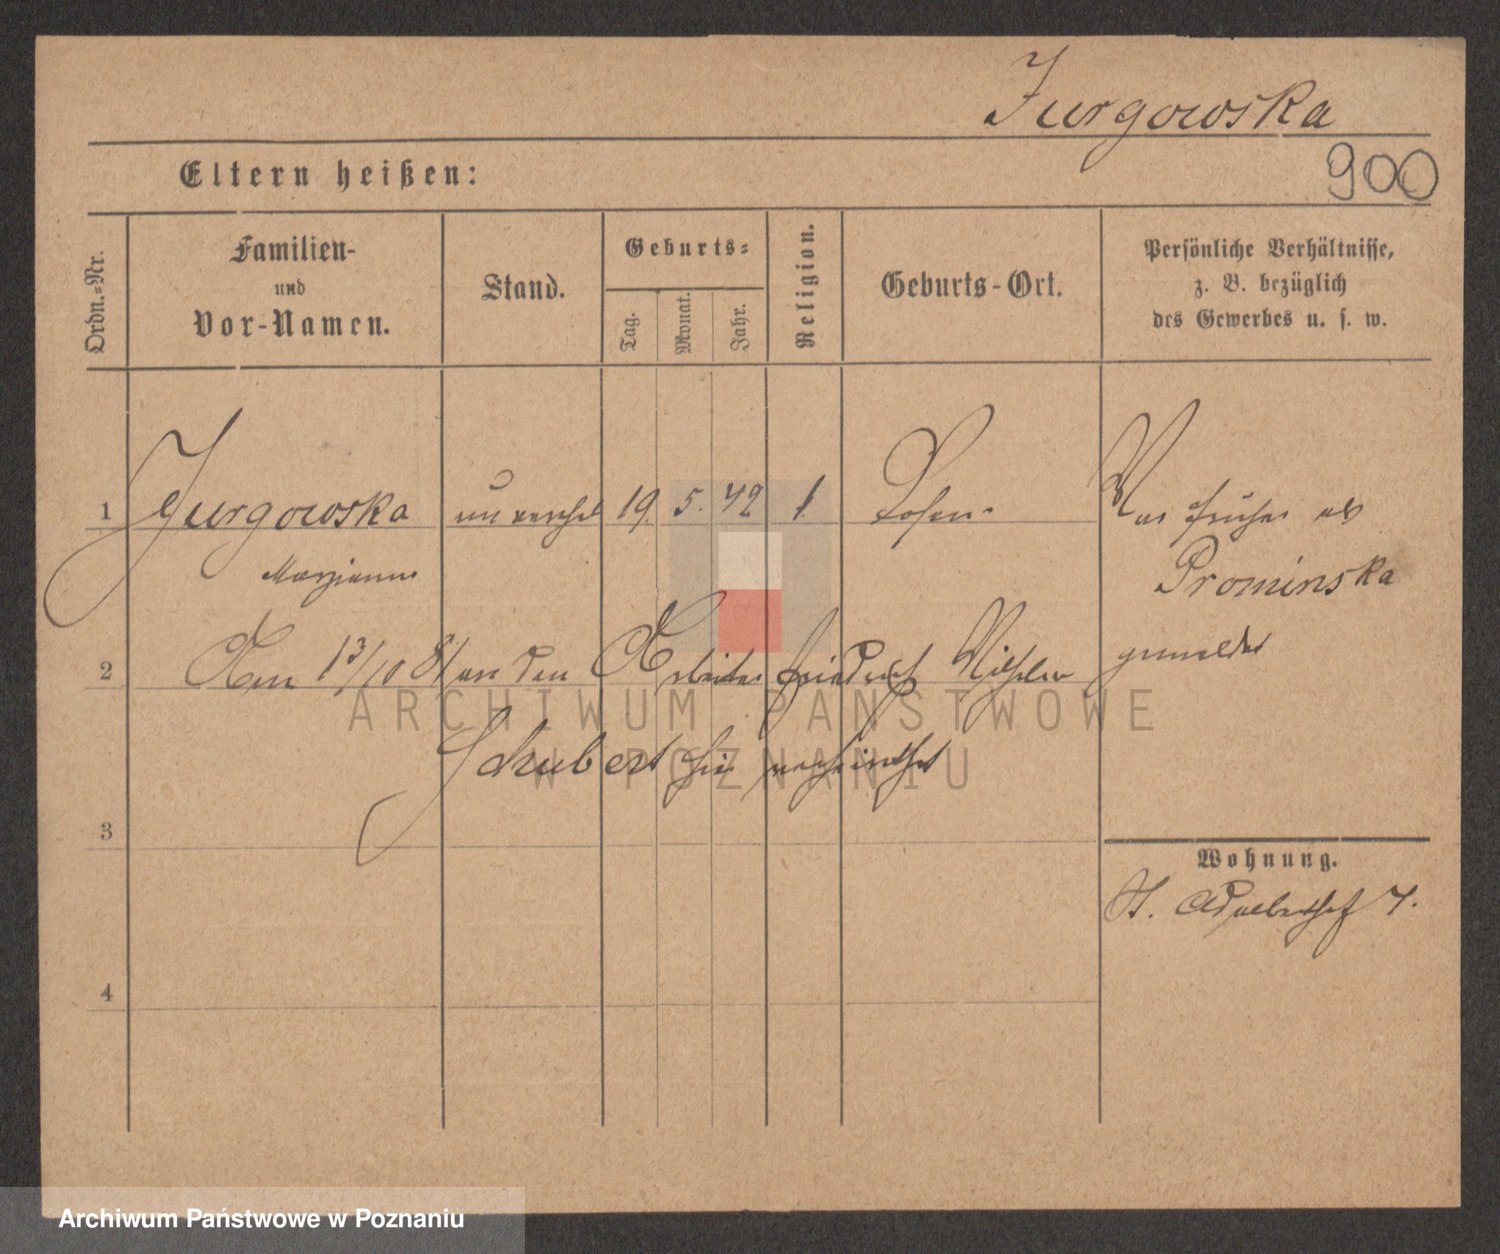 Jurgowska
900
Eltern heißen:
Ordn.-Nr.
Familien-
und
Vor-Namen.
Stand.
Geburts-
Tag.
Monat.
Jahr.
Religion.
Geburts-Ort.
Persönliche Verhältnisse,
z. B. bezüglich
des Gewerbes u. s. w.
1 Jurgowska unverehel 19. 5. 42 Posen
Marianna
War früher als
Prominska
gemeldet
2 Am 13/10 81 an den Arbeiter Friedrich Wilhelm
Schubert hier verheirathet
ARCHIWUM PAŃSTWOWE
W POZNANIU
3
Wohnung.
St. Adalbertstr 7.
4
Archiwum Państwowe w Poznaniu